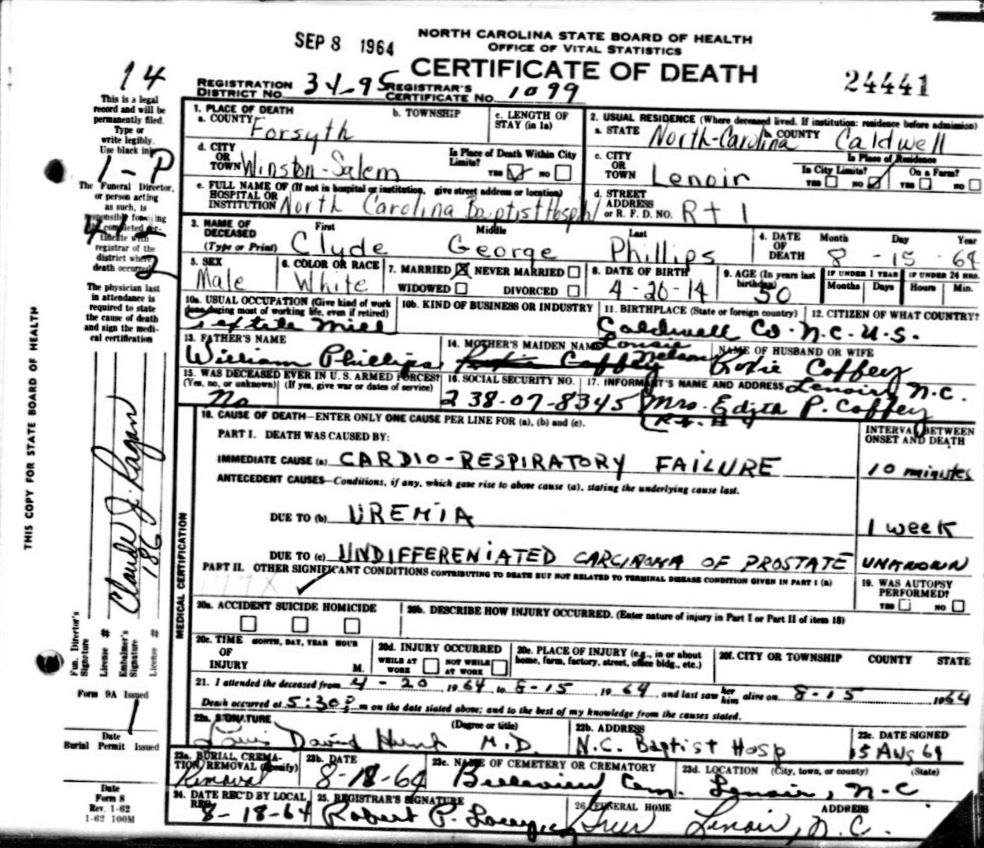 SEP 8 1964
NORTH CAROLINA STATE BOARD OF HEALTH
OFFICE OF VITAL STATISTICS
CERTIFICATE OF DEATH
24441
REGISTRATION DISTRICT NO. 34-95 REGISTRAR'S CERTIFICATE NO. 1099
14
This is a legal
record and will be
permanently filed.
Type or
write legibly.
Use black ink
1-P
The Funeral Director,
or person acting
as such, is
responsible for
registrar of the
district where
death occurred
The physician last
in attendance is
required to state
the cause of death
and sign the medi-
cal certification
THIS COPY FOR STATE BOARD OF HEALTH
Fun. Director's Signature Claude J. Ragan
License # 186
Embalmer's Signature
License #
Form 9A Issued
1
Date
Burial Permit Issued
Date
Form 8
Rev. 1-62
1-62 100M
1. PLACE OF DEATH
a. COUNTY Forsyth
b. TOWNSHIP
c. LENGTH OF STAY (in 1a)
2. USUAL RESIDENCE (Where deceased lived. If institution: residence before admission)
a. STATE North-Carolina b. COUNTY Caldwell
d. CITY OR TOWN Winston-Salem
Is Place of Death Within City Limits? YES NO
c. CITY OR TOWN Lenoir
Is Place of Residence
In City Limits? YES NO On a Farm? YES NO
e. FULL NAME OF (If not in hospital or institution, give street address or location)
HOSPITAL OR INSTITUTION North Carolina Baptist Hospl
d. STREET ADDRESS or R. F. D. NO. Rt 1
3. NAME OF DECEASED (Type or Print)
First Middle Last
Clyde George Phillips
4. DATE OF DEATH Month Day Year
8 - 15 - 64
5. SEX Male
6. COLOR OR RACE White
7. MARRIED NEVER MARRIED
WIDOWED DIVORCED
8. DATE OF BIRTH 4-20-14
9. AGE (In years last birthday) 50
IF UNDER 1 YEAR Months Days
IF UNDER 24 HRS. Hours Min.
10a. USUAL OCCUPATION (Give kind of work done during most of working life, even if retired) Textile Mill
10b. KIND OF BUSINESS OR INDUSTRY
11. BIRTHPLACE (State or foreign country) Caldwell Co. N.C.
12. CITIZEN OF WHAT COUNTRY? U.S.
13. FATHER'S NAME William Phillips
14. MOTHER'S MAIDEN NAME Nelson
NAME OF HUSBAND OR WIFE Coffey
15. WAS DECEASED EVER IN U.S. ARMED FORCES?
(Yes, no, or unknown) (If yes, give war or dates of service)
No
16. SOCIAL SECURITY NO. 238-07-8345
17. INFORMANT'S NAME AND ADDRESS Lenoir N.C.
Mrs. Edith P. Coffey
18. CAUSE OF DEATH—ENTER ONLY ONE CAUSE PER LINE FOR (a), (b) and (c).
PART I. DEATH WAS CAUSED BY:
INTERVAL BETWEEN ONSET AND DEATH
IMMEDIATE CAUSE (a) CARDIO-RESPIRATORY FAILURE 10 minutes
ANTECEDENT CAUSES—Conditions, if any, which gave rise to above cause (a), stating the underlying cause last.
DUE TO (b) UREMIA 1 week
DUE TO (c) UNDIFFERENIATED CARCINOMA OF PROSTATE UNKNOWN
PART II. OTHER SIGNIFICANT CONDITIONS CONTRIBUTING TO DEATH BUT NOT RELATED TO TERMINAL DISEASE CONDITION GIVEN IN PART I (a)
177X
19. WAS AUTOPSY PERFORMED?
YES NO
MEDICAL CERTIFICATION
20a. ACCIDENT SUICIDE HOMICIDE
20b. DESCRIBE HOW INJURY OCCURRED. (Enter nature of injury in Part I or Part II of item 18)
20c. TIME OF INJURY MONTH, DAY, YEAR HOUR M.
20d. INJURY OCCURRED WHILE AT WORK NOT WHILE AT WORK
20e. PLACE OF INJURY (e.g., in or about home, farm, factory, street, office bldg., etc.)
20f. CITY OR TOWNSHIP COUNTY STATE
21. I attended the deceased from 4-20 1964 to 8-15, 1964 and last saw her him alive on 8-15 1964
Death occurred at 5:30 P m on the date stated above; and to the best of my knowledge from the causes stated.
22a. SIGNATURE (Degree or title)
Louis David Hunt M.D.
22b. ADDRESS N.C. Baptist Hosp
22c. DATE SIGNED 15 Aug 64
23a. BURIAL, CREMATION/REMOVAL (Specify) Removal
23b. DATE 8-18-64
23c. NAME OF CEMETERY OR CREMATORY Belleview Cem.
23d. LOCATION (City, town, or county) (State)
Lenoir, N.C.
24. DATE REC'D BY LOCAL REG. 8-18-64
25. REGISTRAR'S SIGNATURE Robert P.
26. FUNERAL HOME Greer
ADDRESS Lenoir, N.C.